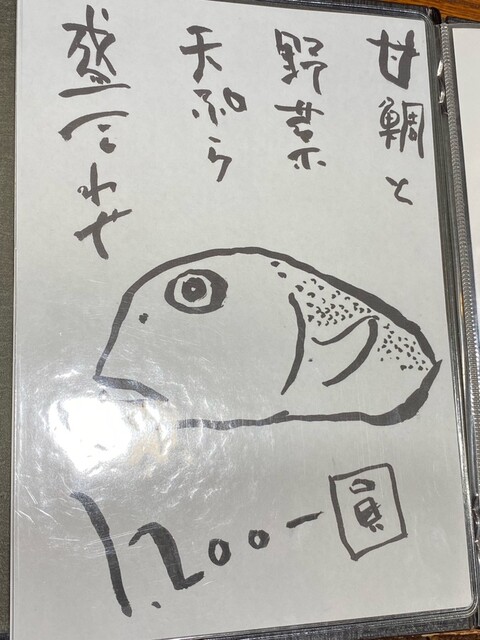 甘鯛と
野菜
天ぷら
盛合わせ
1.200-圓